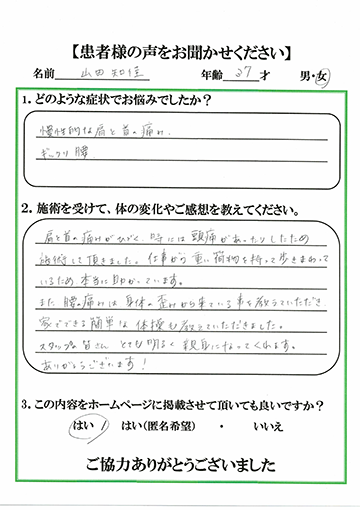 【患者様の声をお聞かせください】
名前 山田知佳 年齢 37才 男・女
1. どのような症状でお悩みでしたか?
慢性的な肩と首の痛み、
ぎっくり腰
2. 施術を受けて、体の変化やご感想を教えてください。
肩と首の痛みがひどく、時には頭痛があったりしたため
施術して頂きました。仕事がら重い荷物を持って歩きまわって
いるため本当に助かっています。
また腰の痛みは身体の歪みから来ている事を教えていただき
家でできる簡単な体操も教えていただきました。
スタッフの皆さんとても明るく親身になってくれます。
ありがとうございます!
3. この内容をホームページに掲載させて頂いても良いですか?
はい / はい(匿名希望) ・ いいえ
ご協力ありがとうございました